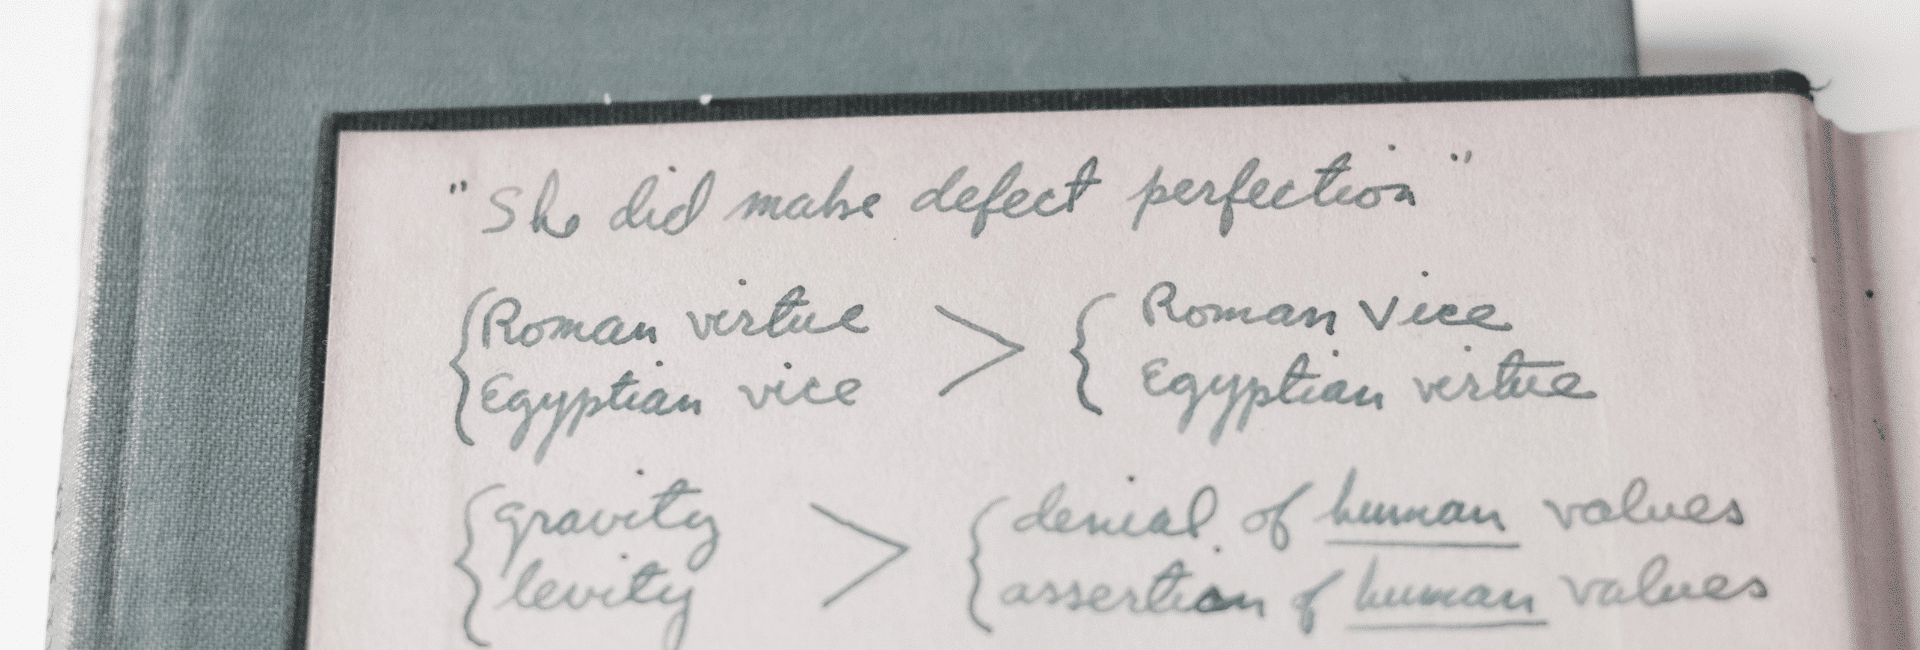 "She did make defect perfection"
{ Roman virtue > { Roman vice
{ Egyptian vice > { Egyptian virtue
{ gravity > { denial of human values
{ levity > { assertion of human values